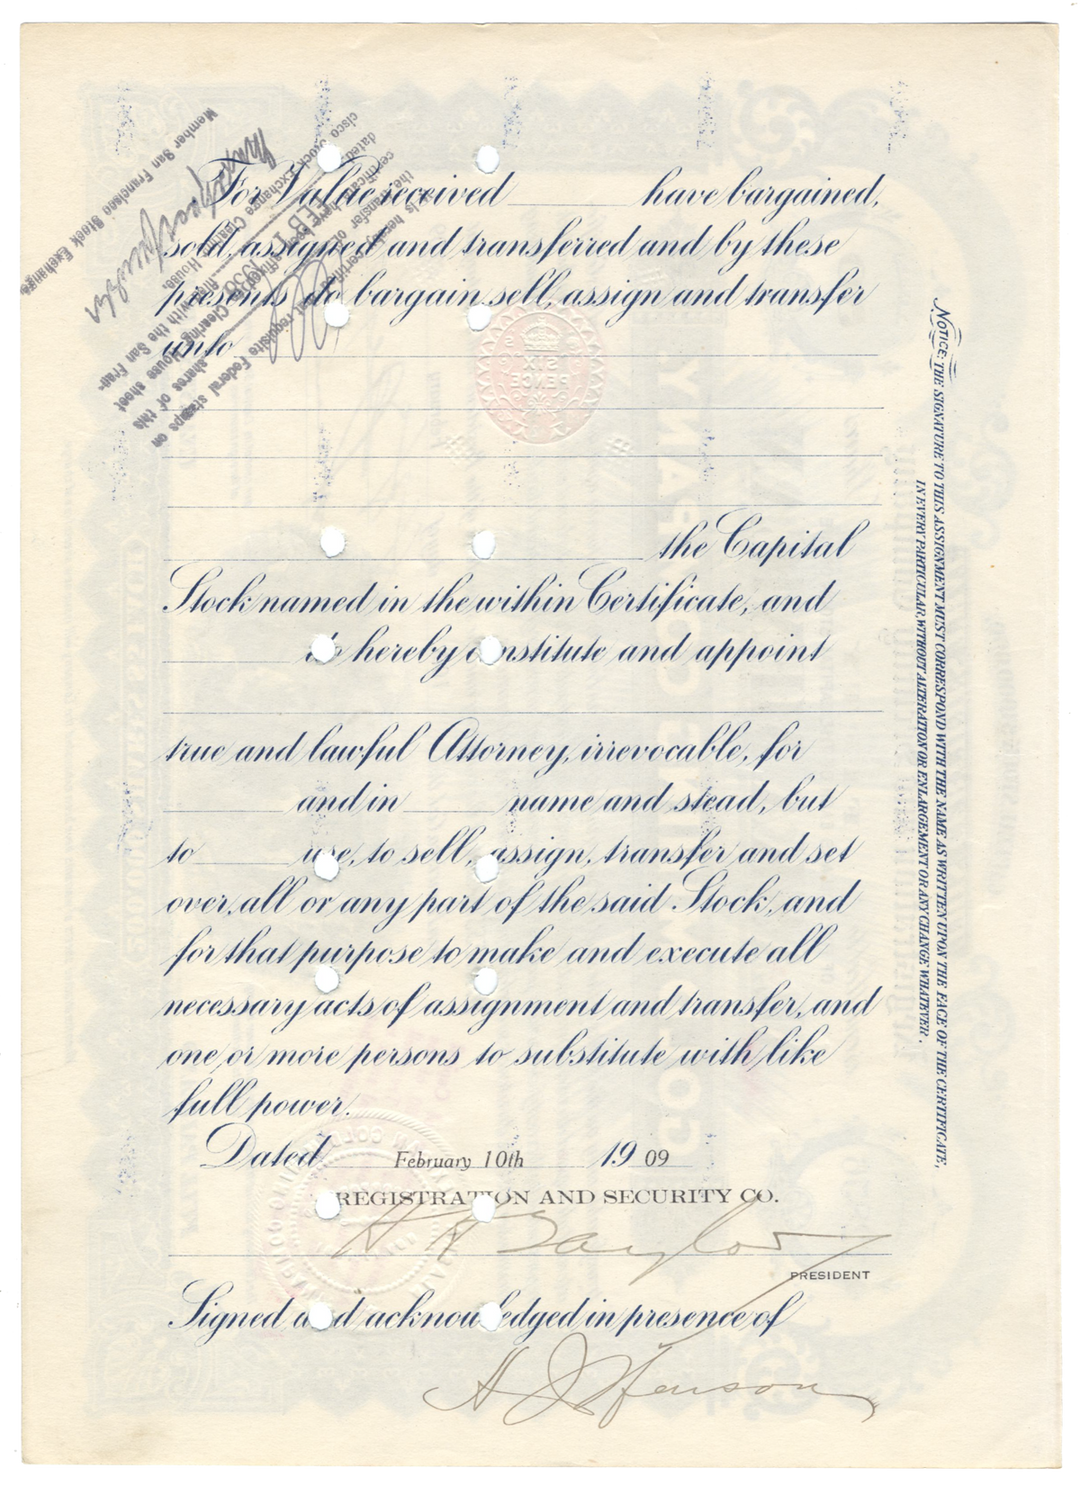 For Value received ______ have bargained,
sold, assigned and transferred and by these
presents do bargain, sell, assign and transfer
unto
the Capital
Stock named in the within Certificate, and
do hereby constitute and appoint
true and lawful Attorney, irrevocable, for
______ and in ______ name and stead, but
to ______ use, to sell, assign, transfer and set
over, all or any part of the said Stock, and
for that purpose to make and execute all
necessary acts of assignment and transfer, and
one or more persons to substitute with like
full power.
Dated February 10th 1909
REGISTRATION AND SECURITY CO.
H H Taylor
PRESIDENT
Signed and acknowledged in presence of
H J Henson
NOTICE: THE SIGNATURE TO THIS ASSIGNMENT MUST CORRESPOND WITH THE NAME AS WRITTEN UPON THE FACE OF THE CERTIFICATE,
IN EVERY PARTICULAR, WITHOUT ALTERATION OR ENLARGEMENT OR ANY CHANGE WHATEVER.
requisite Federal stamps on
shares of this
Clearing House sheet
filed with the San Fran-
cisco Stock Exchange Clearing House.
Member San Francisco Stock Exchange.
SIX
PENCE